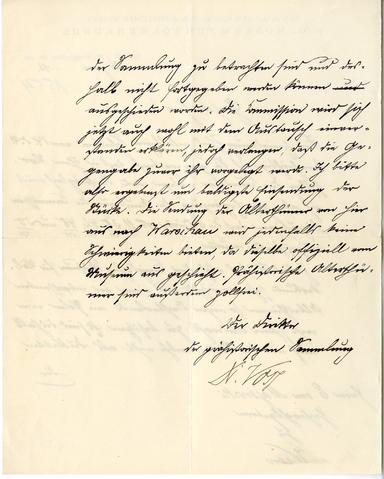 der Sammlung zu betrachten sind und des-
halb nicht fortgegeben werden können und
ausgeschieden werden. Die Commission wird sich
jetzt auch wohl mit dem Austausch einver-
standen erklären, jedoch verlangen, daß die Ge-
gengabe zuvor ihr vorgelegt werde. Ich bitte
also ergebenst um baldigste Einsendung der
Stücke. Die Sendung der Alterthümer von hier
aus nach Warschau wird jedenfalls keine
Schwierigkeiten bieten, da dieselbe offiziell vom
Museum aus geschieht. Prähistorische Alterthü-
mer sind außerdem zollfrei.
Der Direktor
der prähistorischen Sammlung
A. Voss